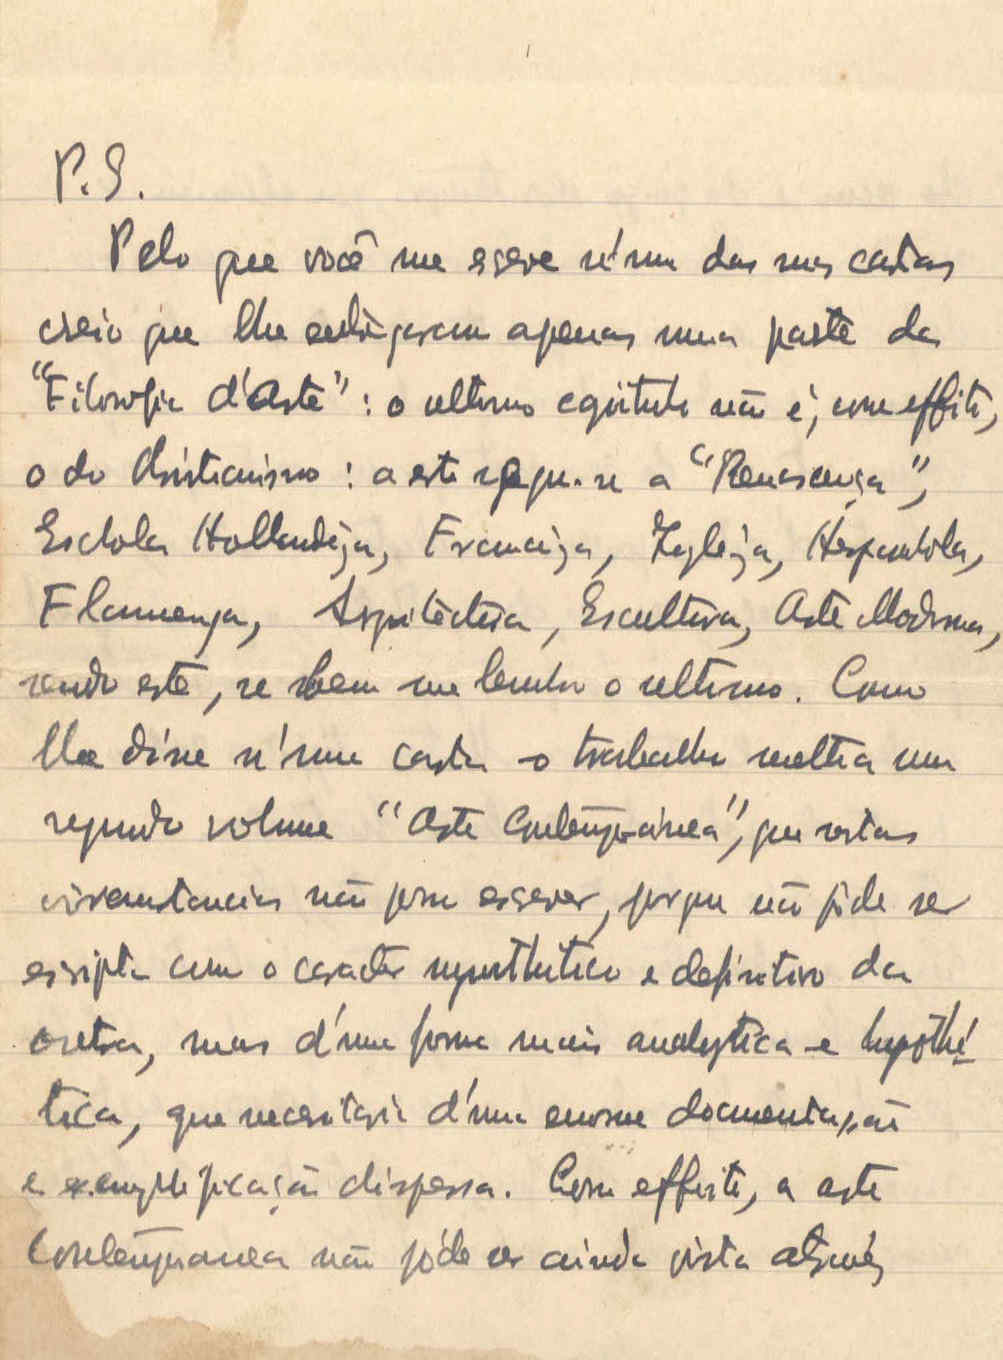 P.S.
Pelo que você me escreve n'uma das suas cartas
creio que lhe entregaram apenas uma parte da
"Filosofia d'Arte" : o ultimo capitulo não é, com effeito,
o do Christianismo : a este segue-se a "Renascença",
Escola Hollandeza, Franceza, Ingleza, Hespanhola,
Flamenga, Arquitectura, Escultura, Arte Moderna,
sendo este, se bem me lembro o ultimo. Como
lhe disse n'uma carta o trabalho
segundo volume "Arte Contemporânea", que n'estas
circumstancias não posso escrever, porque não póde ser
escripta com o caracter synthetico e definitivo da
outra, mas d'uma forma mais analytica e hypothé-
tica, que necessitaria d'uma enorme documentação
e exemplificação dispersa. Com effeito, a arte
Contemporanea não póde ser ainda vista através